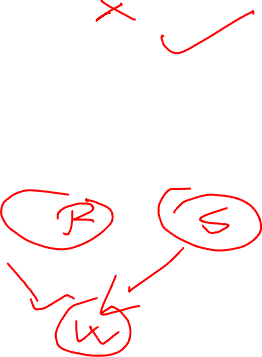 × ✓
R S
W